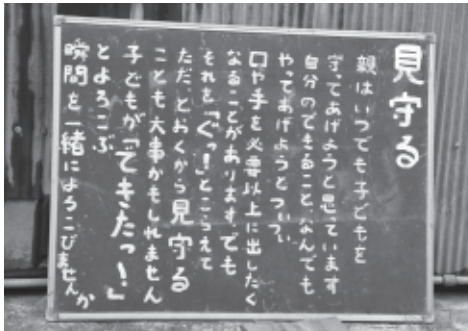 見守る
親はいつでも子どもを
守ってあげようと思っています
自分のできること、なんでも
やってあげようとついつい
口や手を必要以上に出したく
なることがあります。でも
それを「ぐっ!」とこらえて
ただ、とおくから見守る
ことも大事かもしれません
子どもが「できたっー!」
とよろこぶ
瞬間を一緒によろこびませんか